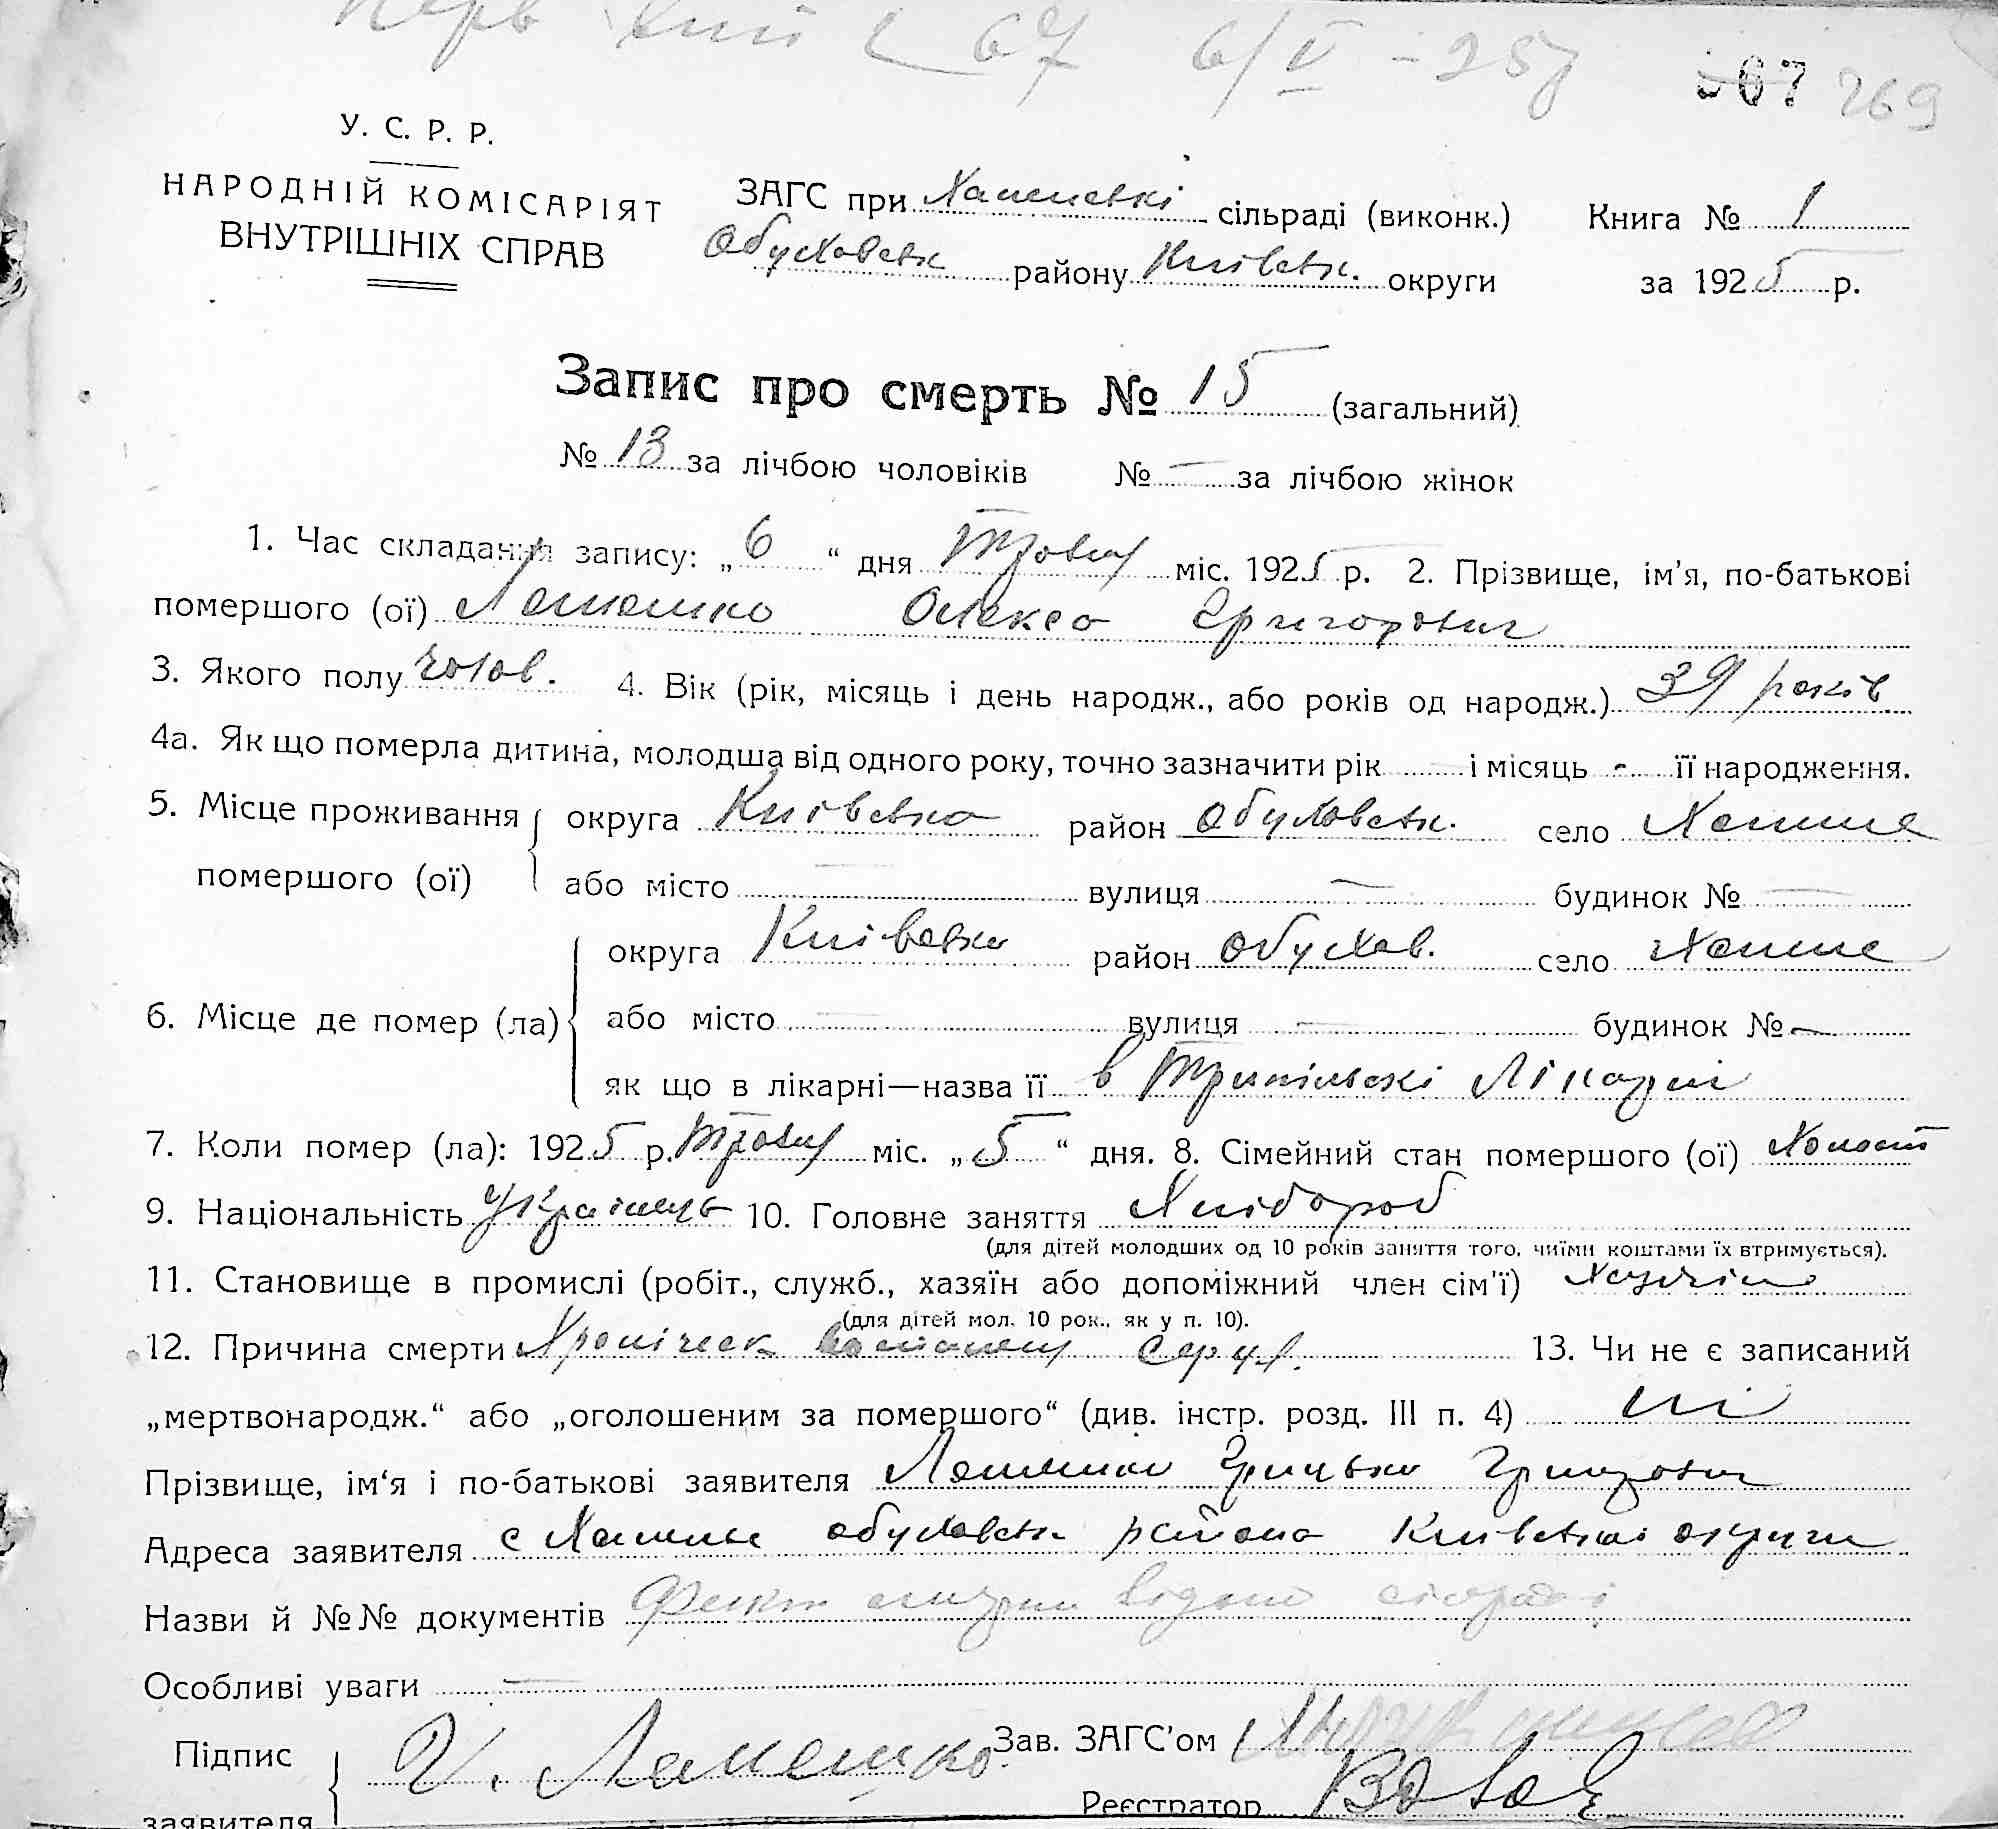 67 6/V – 25 р
67 269
У. С. Р. Р.
НАРОДНІЙ КОМІСАРІЯТ
ВНУТРІШНІХ СПРАВ
ЗАГС при сільраді (виконк.) Книга № 1
Обуховськ району Київськ. округи за 1925 р.
Запис про смерть № 15 (загальний)
№ 13 за лічбою чоловіків № — за лічбою жінок
1. Час складання запису: „6“ дня Травня міс. 1925 р. 2. Прізвище, ім'я, по-батькові
помершого (ої) Олекса Григорович
3. Якого полу чолов. 4. Вік (рік, місяць і день народж., або років од народж.) 39 років
4а. Як що померла дитина, молодша від одного року, точно зазначити рік — і місяць - її народження.
5. Місце проживання округа Київська район Обуховськ. село
помершого (ої) або місто — вулиця — будинок № —
округа Київська район Обухов. село
6. Місце де помер (ла) або місто — вулиця — будинок № —
як що в лікарні—назва її в Трипільскі Лікарні
7. Коли помер (ла): 1925 р. Травня міс. „5“ дня. 8. Сімейний стан помершого (ої) Холост
9. Національність Українець 10. Головне заняття Хлібороб
(для дітей молодших од 10 років заняття того, чиїми коштами їх втримується).
11. Становище в промислі (робіт., служб., хазяїн або допоміжний член сім'ї) Хазяїн
(для дітей мол. 10 рок., як у п. 10).
12. Причина смерти Хроніческ серця. 13. Чи не є записаний
„мертвонародж.“ або „оголошеним за помершого“ (див. інстр. розд. III п. 4) ні
Прізвище, ім'я і по-батькові заявителя Грицько Григорович
Адреса заявителя с Обуховськ района Київської округи
Назви й №№ документів Факт смерти відомо сільраді
Особливі уваги —
Підпис Г. Ламешко Зав. ЗАГС'ом
заявителя Реєстратор